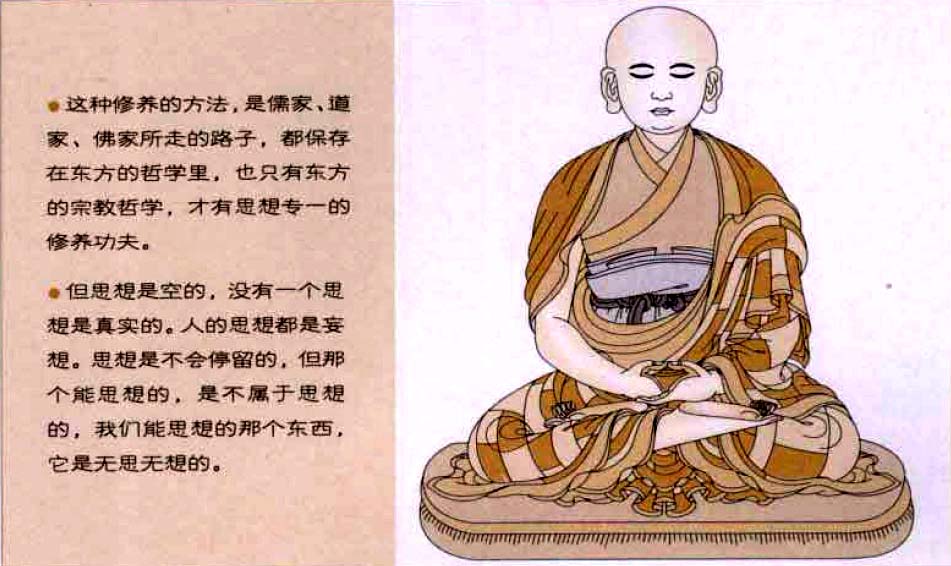 ● 这种修养的方法，是儒家、道
家、佛家所走的路子，都保存
在东方的哲学里，也只有东方
的宗教哲学，才有思想专一的
修养功夫。
● 但思想是空的，没有一个思
想是真实的。人的思想都是妄
想。思想是不会停留的，但那
个能思想的，是不属于思想
的，我们能思想的那个东西，
它是无思无想的。